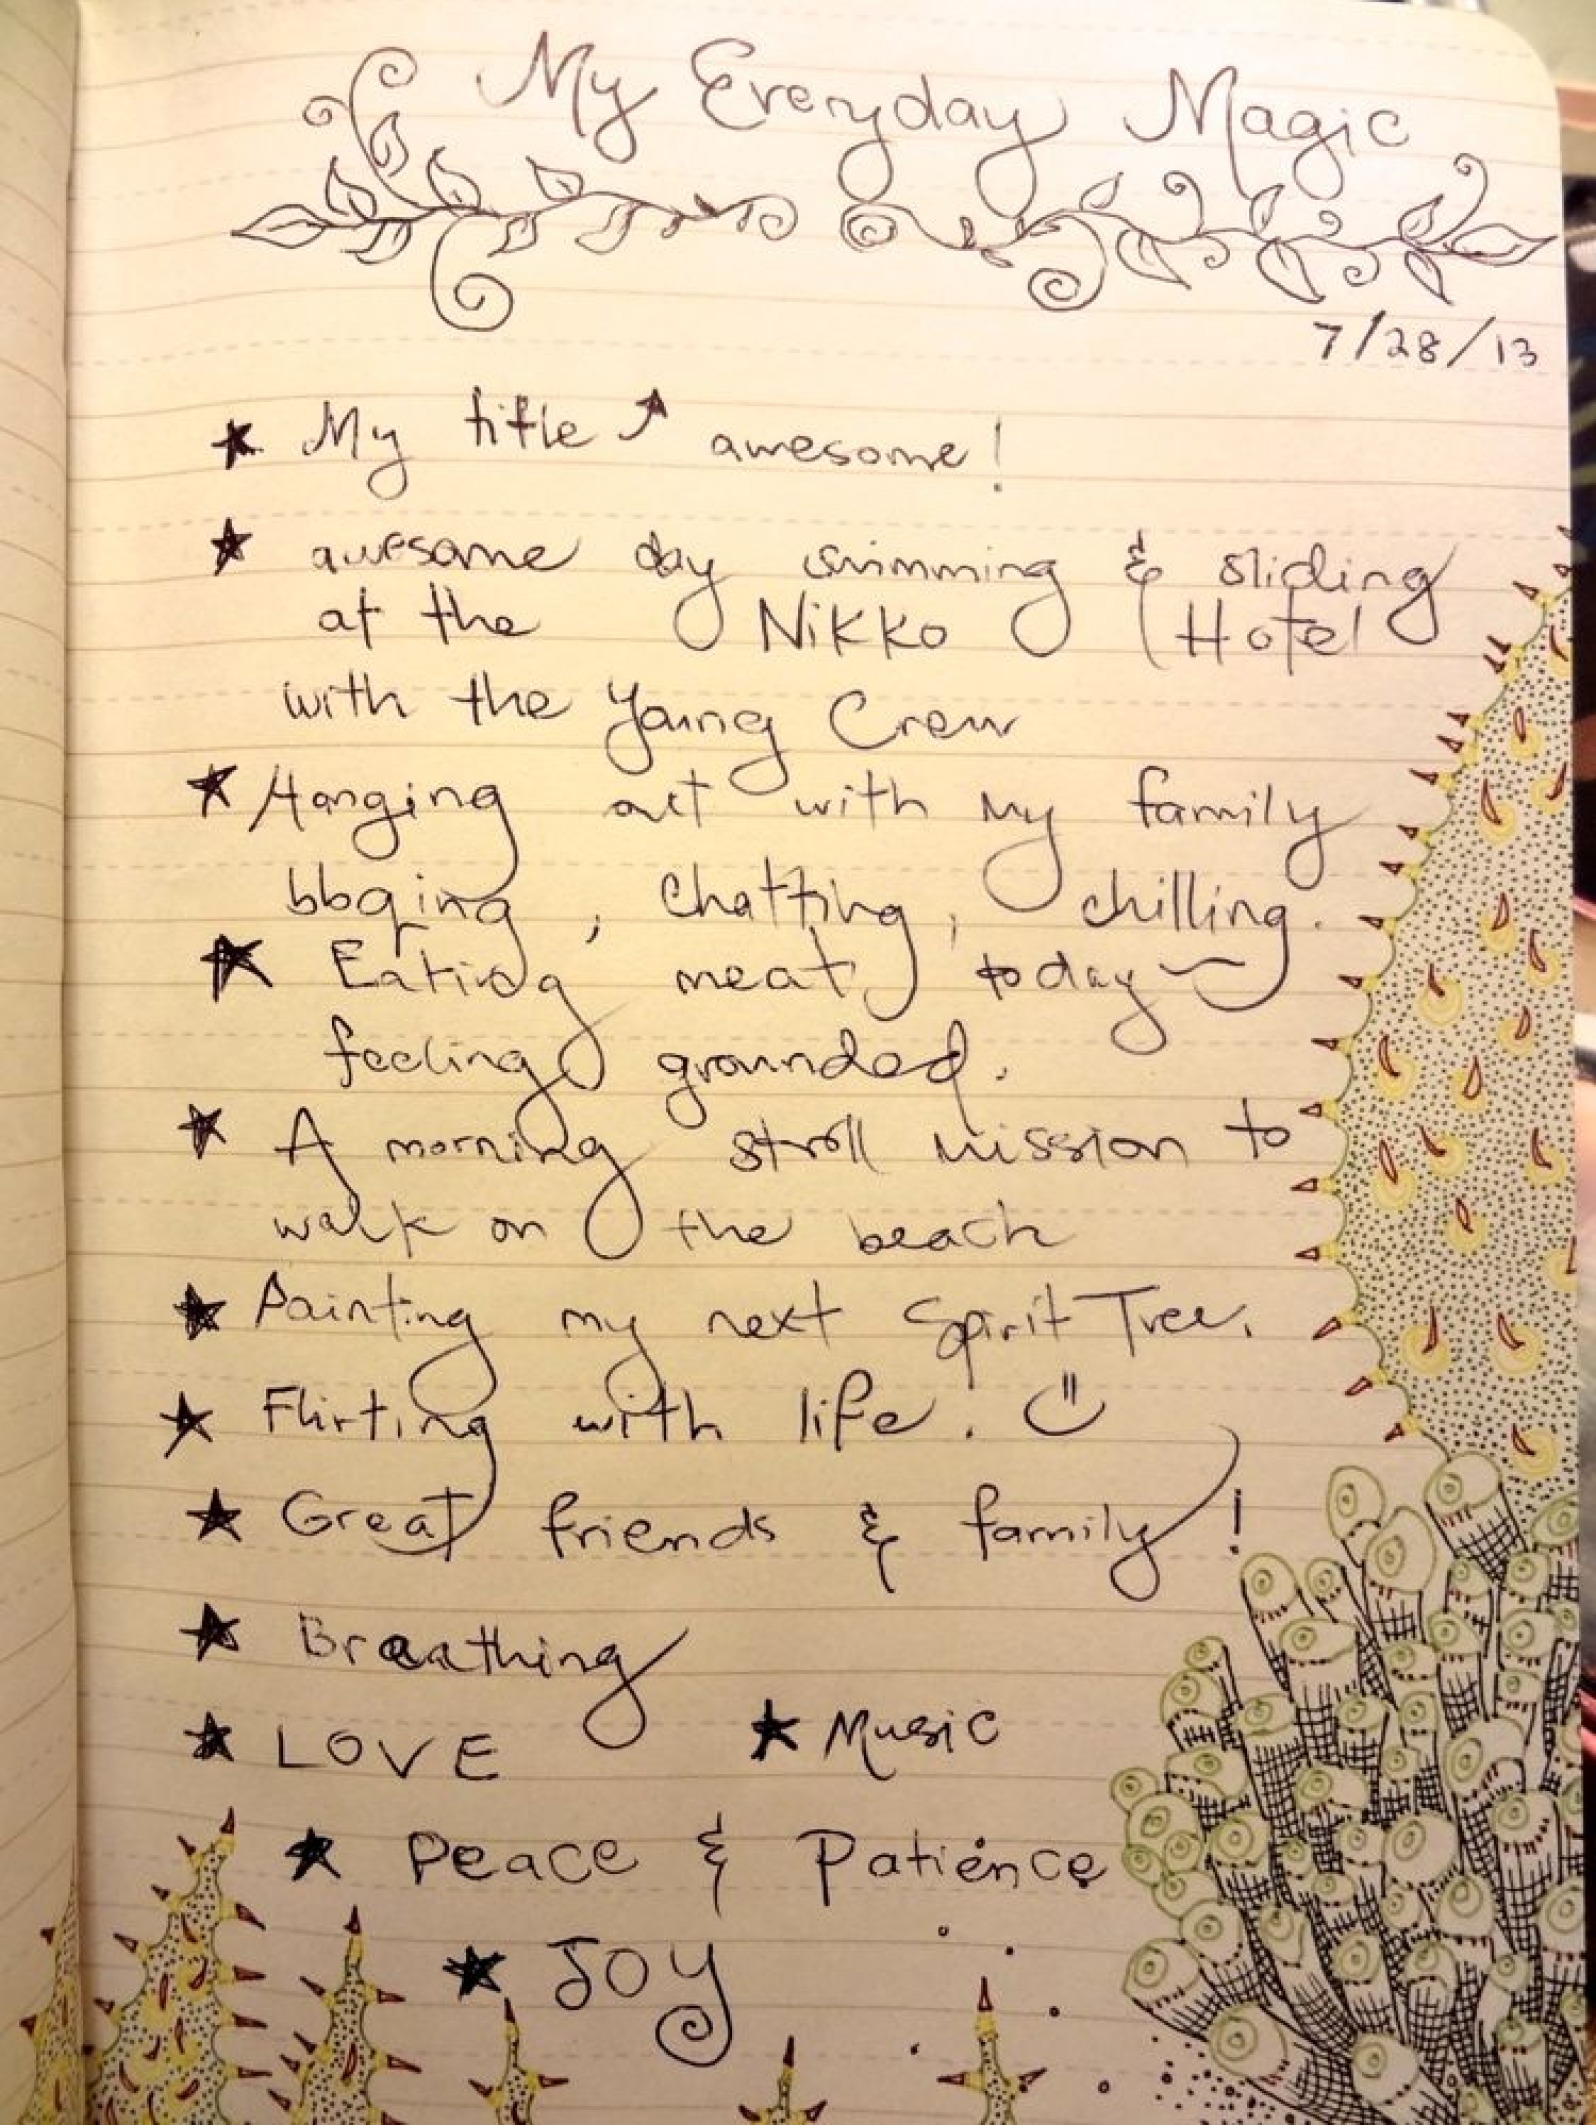 My Everyday Magic
7/28/13
★ My title ↗ awesome!
★ awesome day swimming & sliding
at the Nikko Hotel
with the Young Crew
★ Hanging out with my family
bbqing, chatting, chilling.
★ Eating meat today~
feeling grounded.
★ A morning stroll mission to
walk on the beach
★ Painting my next Spirit Tree.
★ Flirting with life. :)
★ Great friends & family!
★ Breathing
★ LOVE ★ Music
★ Peace & Patience
★ JOY